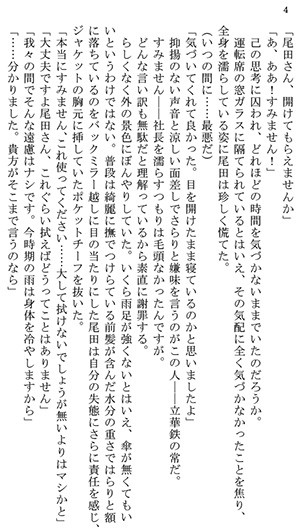 4
「尾田さん、開けてもらえませんか」
「あ、ああ！すみません！」
己の思考に囚われ、どれほどの時間を気づかないままでいたのだろうか。
運転席の窓ガラスに隔てられているとはいえ、その気配に全く気づかなかったことを焦り、
全身を濡らしている姿に尾田は珍しく慌てた。
（いつの間に……最悪だ）
「気づいてくれて良かった。目を開けたまま寝ているのかと思いましたよ」
抑揚のない声音と涼しい面差しでさらりと嫌味を言うのがこの人――立華鉄の常だ。
すみません――社長を濡らすつもりは毛頭なかったんですが。
どんな言い訳も無駄だと理解っているから素直に謝罪する。
らしくなく外の景色にぼんやりしていた。いくら雨足が強くないとはいえ、傘が無くてもい
いというわけではない。普段は綺麗に撫でつけている前髪が含んだ水分の重さではらりと額
に落ちているのをバックミラー越しに目の当たりにした尾田は自分の失態にさらに責任を感じ、
ジャケットの胸元に挿していたポケットチーフを抜いた。
「本当にすみません、これ使ってください……大して拭けないでしょうが無いよりはマシかと」
「大丈夫ですよ尾田さん、これぐらい拭えばどうってことはありません」
「我々の間でそんな遠慮はナシです。今時期の雨は身体を冷やしますから」
「……分かりました。貴方がそこまで言うのなら」